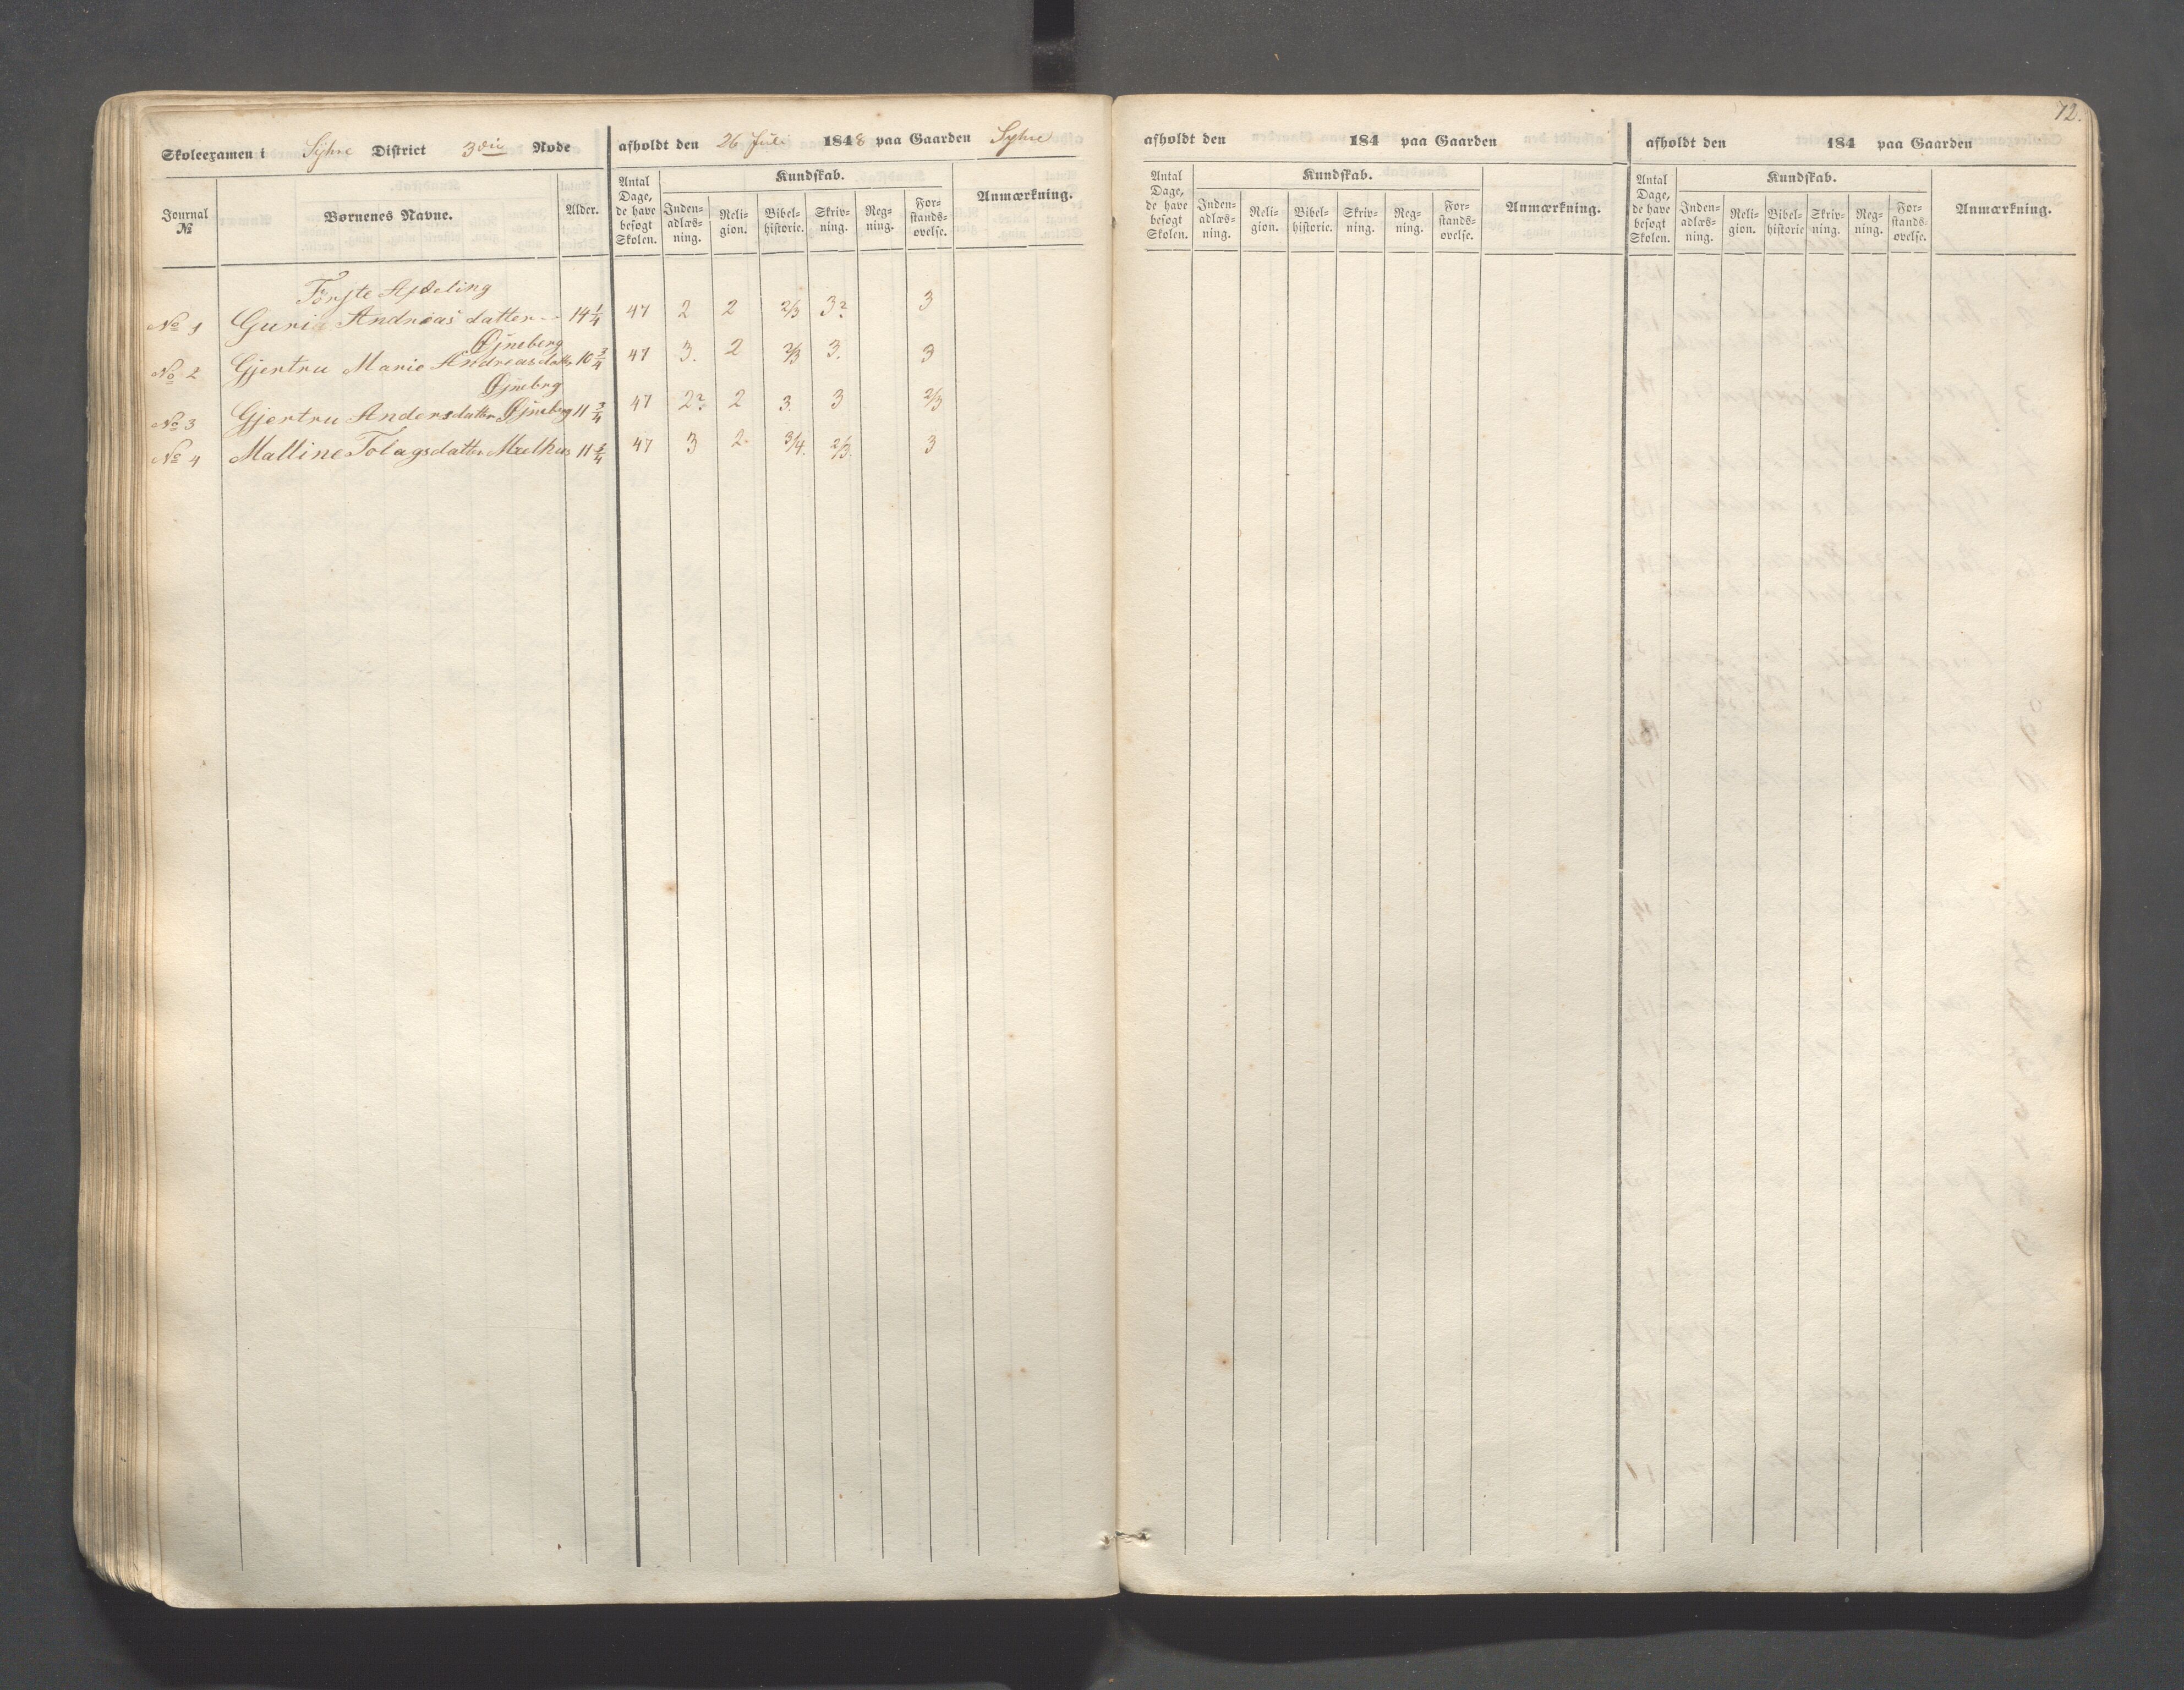 Skoleexamen i Syhre District 3die Rode
afholdt den 26 Juli 1848 paa Gaarden Syhre
Journal № Børnenes Navne. Alder. Antal Dage, de have besøgt Skolen. Kundskab. Anmærkning.
Indenadlæsning. Religion. Bibelhistorie. Skrivning. Regning. Forstandsøvelse.
Første Afdeling
No 1 Guria Andreas datter 14 1/4 47 2 2 2/3 3? 3
Øjneberg
No 2 Gjertru Marie Andreasdatter 10 3/4 47 3. 2 2/3 3. 3
Øjnebrg
No 3 Gjertru Andersdatter Øjneberg 11 3/4 47 2? 2 3. 3 2/3
No 4 Malline Tolagsdatter Mælhus 11 3/4 47 3 2 3/4. 2/3. 3
72.
afholdt den 184 paa Gaarden
Antal Dage, de have besøgt Skolen. Kundskab. Anmærkning.
Indenadlæsning. Religion. Bibelhistorie. Skrivning. Regning. Forstandsøvelse.
afholdt den 184 paa Gaarden
Antal Dage, de have besøgt Skolen. Kundskab. Anmærkning.
Indenadlæsning. Religion. Bibelhistorie Skrivning. Regning. Forstandsøvelse.